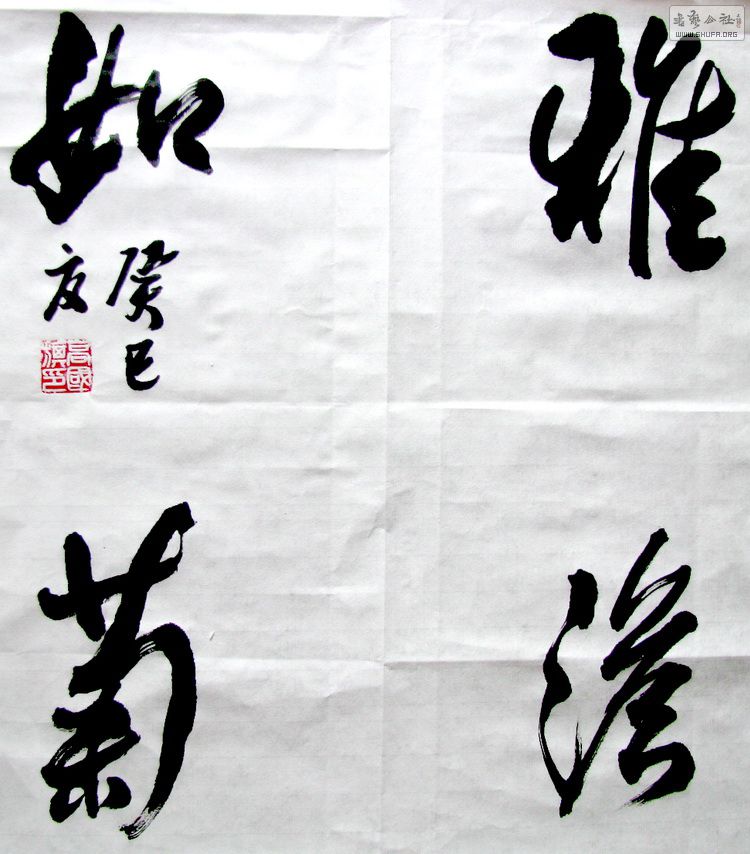 雅淡
如菊
癸巳
夏
书艺公社
WWW.SHUFA.ORG